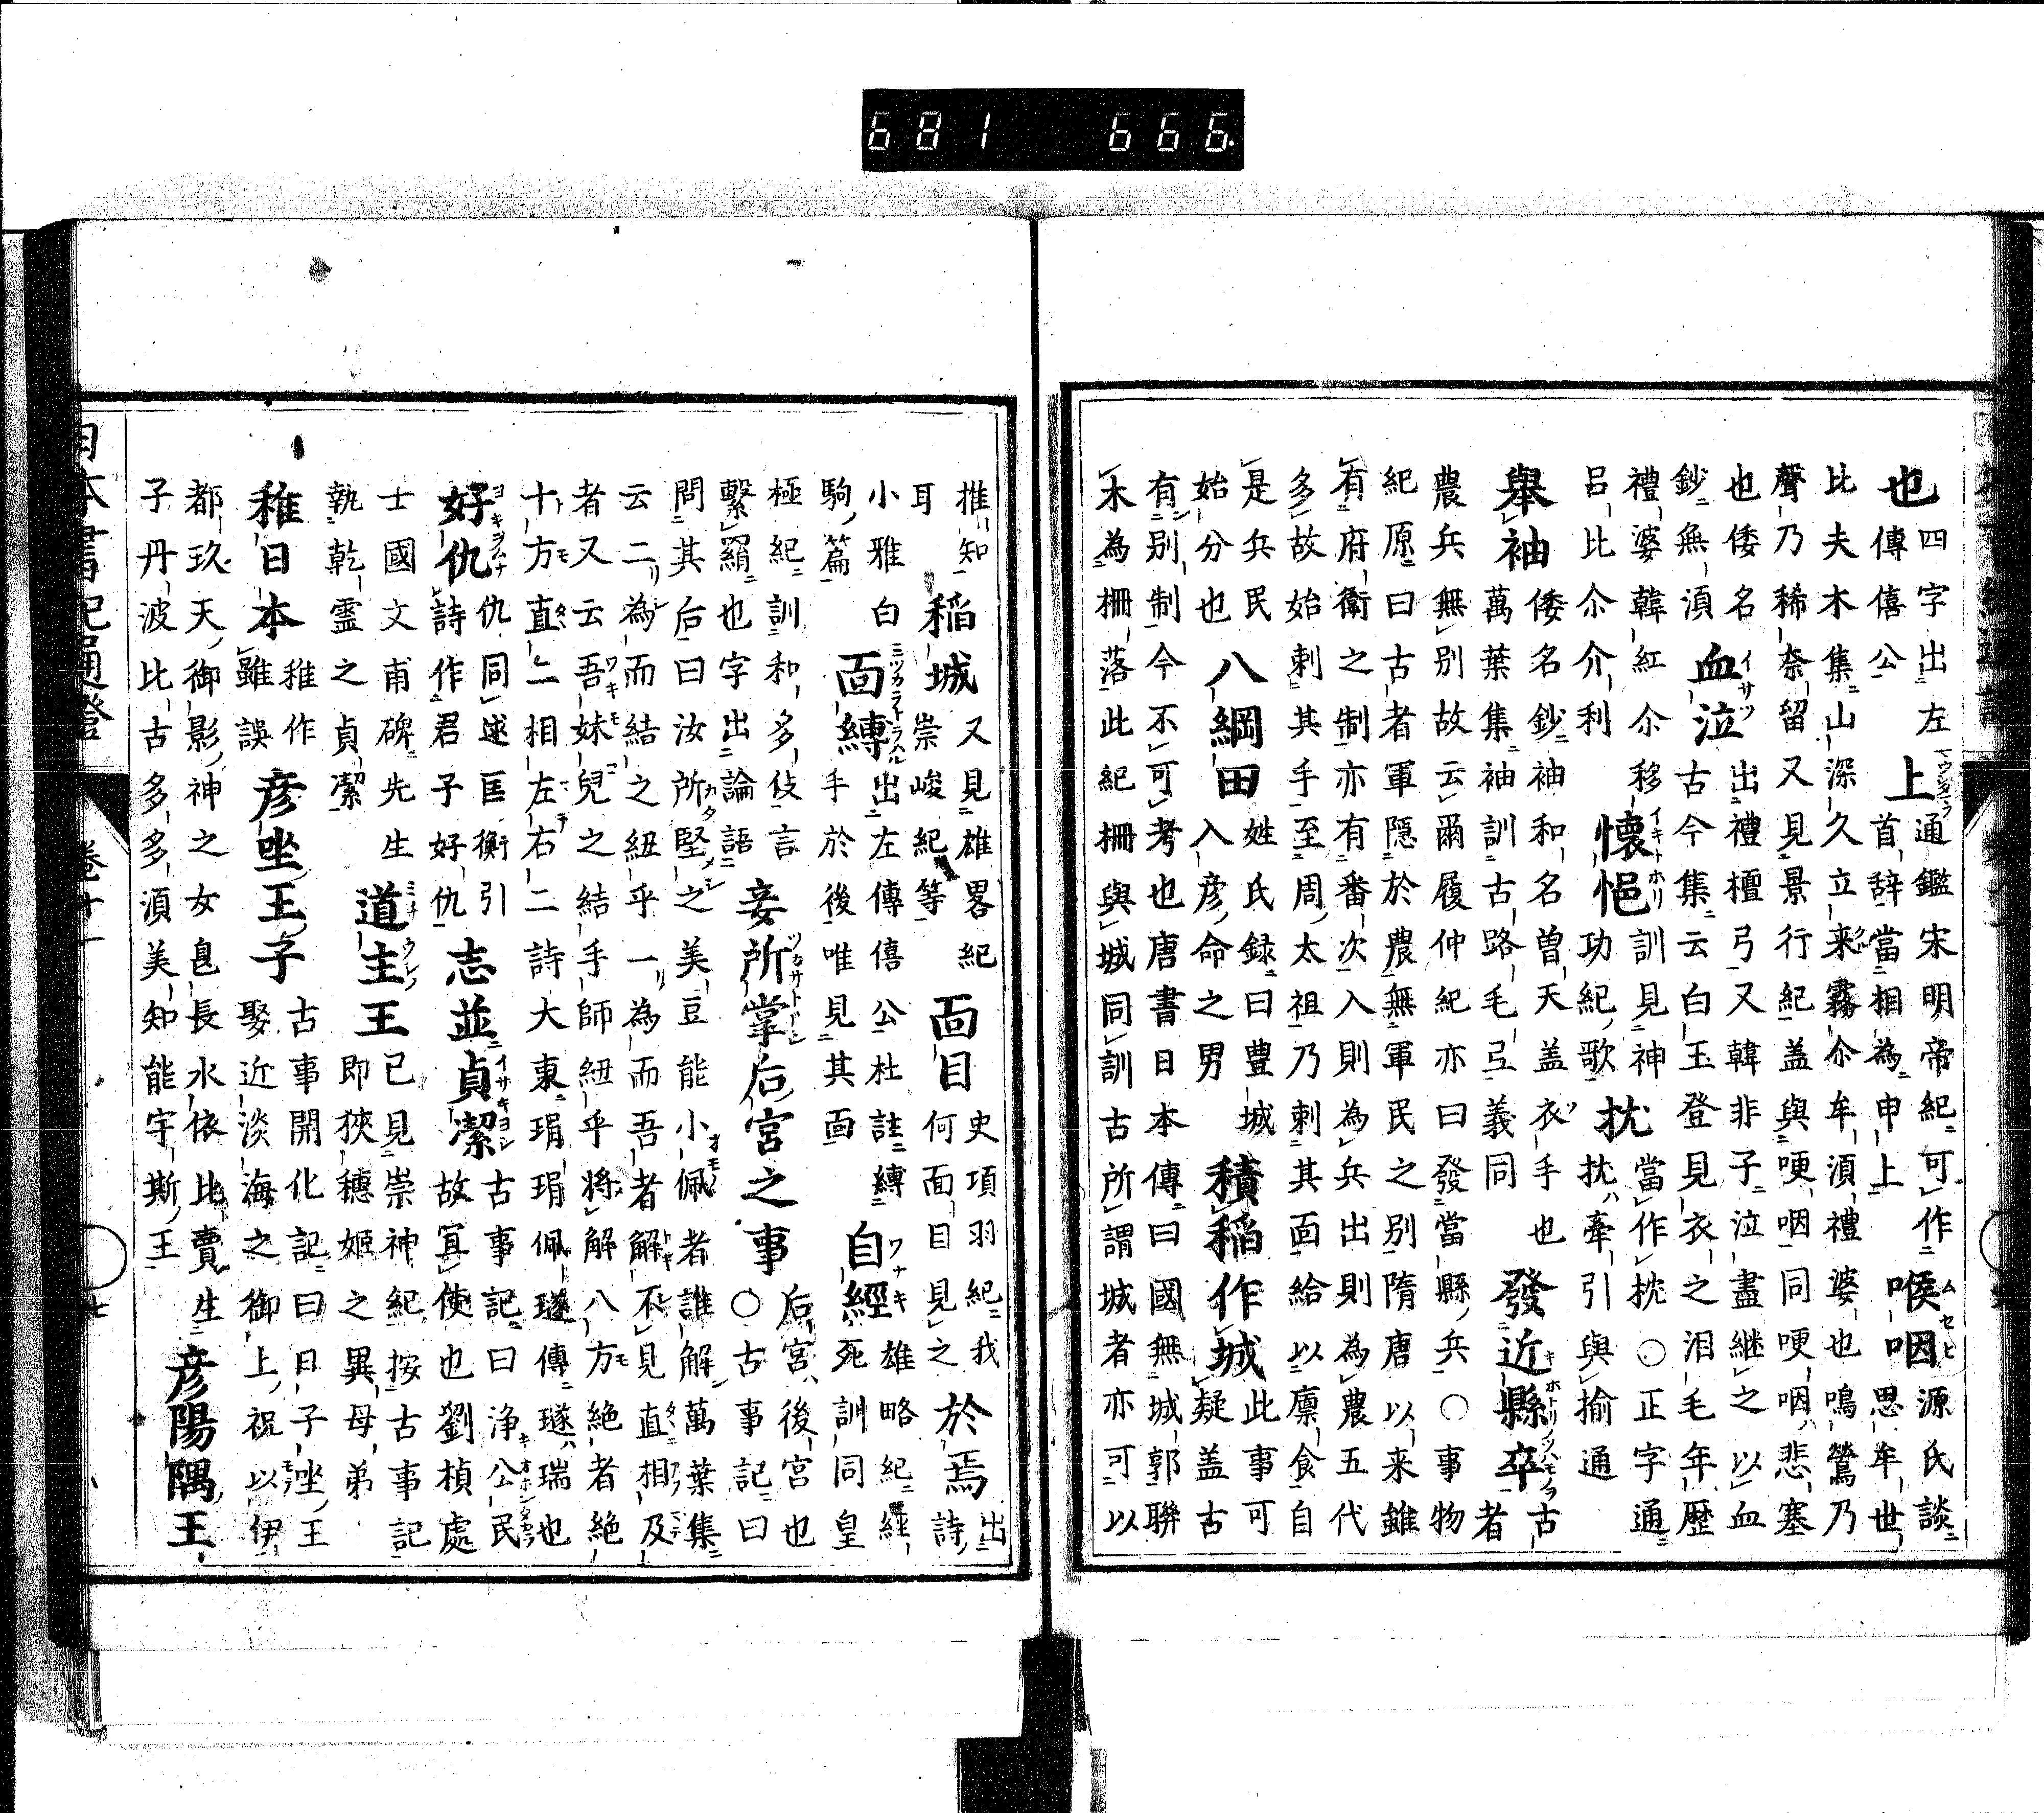 也四字出左
傳僖公
上通鑑宋明帝紀可作
首辞當相為申上
喉咽源氏談
思牟世
比夫木集山深久立来霧尒牟湏禮婆也鳴鶯乃
聲乃稀奈留又見景行紀盖與哽咽同哽咽悲塞
也倭名
鈔無湏
血泣出禮檀弓又韓非子泣盡継之以血
古今集云白玉登見衣之泪毛年歴
禮婆韓紅尒移
呂比尒介利
懐悒訓見神
功紀歌
枕當作枕○正字通
枕牽引與揄通
舉袖倭名鈔袖和名曽天盖衣手也
萬葉集袖訓古路毛弖義同
發近縣卒古
者
農兵無別故云爾履仲紀亦曰發當縣兵○事物
紀原曰古者軍隱於農無軍民之別隋唐以来雖
有府衛之制亦有番次入則為兵出則為農五代
多故始刺其手至周太祖乃刺其面給以廪食自
是兵民
始分也
八綱田姓氏録曰豊城
入彦命之男
積稲作城此事可
疑盖古
有別制今不可考也唐書日本傳曰國無城郭聯
木為柵落此紀柵與城同訓古所謂城者亦可以
推知
耳
稲城又見雄畧紀
崇峻紀等
面目史項羽紀我
何面目見之
於焉出
詩
小雅白
駒篇
面縛出左傳僖公杜註縛
手於後唯見其面
自經雄略紀経
死訓同皇
極紀訓和多伎言
繫羂也字出論語
妾所掌后宮之事后宮後宮也
○古事記曰
問其后曰汝所堅之美豆能小佩者誰解萬葉集
云二為而結之紐乎一為而吾者解不見直相及
者又云吾妹兒之結手師紐乎将解八方絶者絶
十方直二相左右二詩大東琄琄佩璲傳璲瑞也
好仇仇同逑匡衡引
詩作君子好仇
志並貞潔古事記曰浄公民
故冝使也劉楨處
士國文甫碑先生
執乾霊之貞潔
道主王已見崇神紀按古事記
即狹穂姫之異母弟
稚日本稚作
雖誤
彦坐王子古事開化記曰日子坐王
娶近淡海之御上祝以伊
都玖天御影神之女息長水依比賣生
子丹波比古多多湏美知能宇斯王
彦陽隅王
日本書紀通證
卷十一
七
681 666